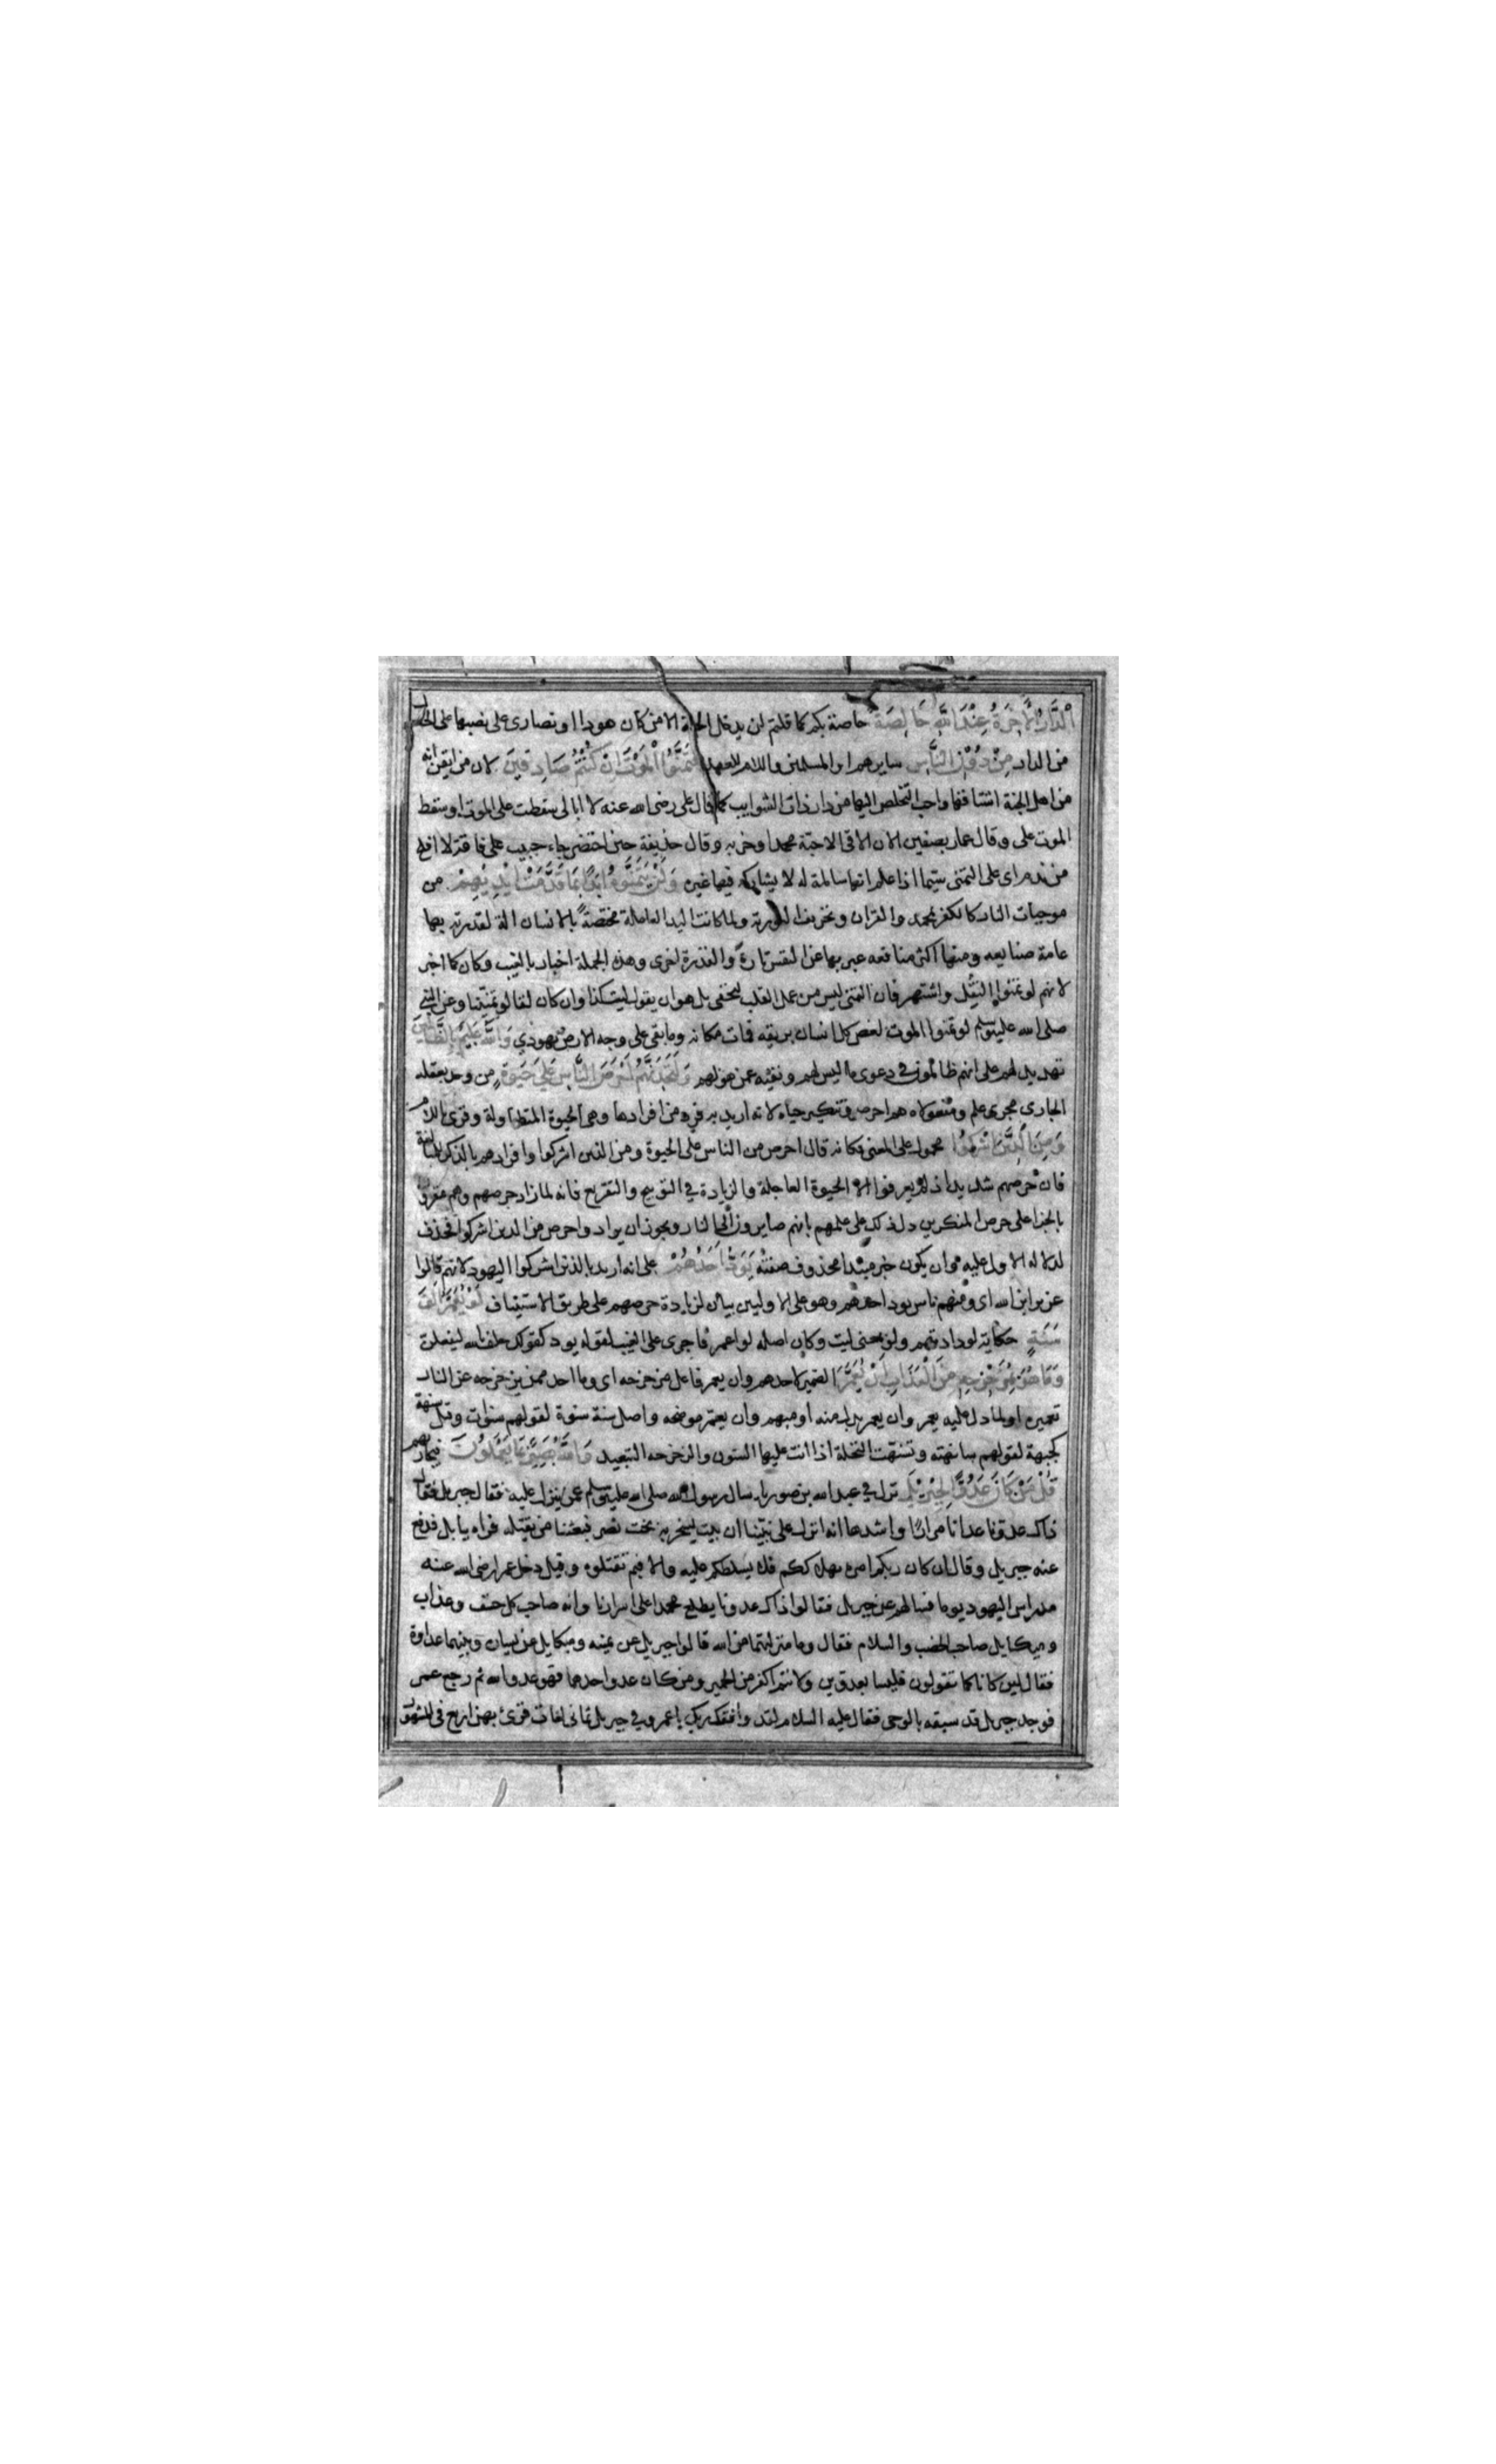 الدَّارُ الْآخِرَةُ عِنْدَ اللهِ خَالِصَةً خاصة بكم كما قلتم لن يدخل الجنة الا من كان هودا او نصارى على نصبها على الحال
من الدار مِنْ دُوْنِ النَّاسِ سايرهم او المسلمين واللام للعهد فَتَمَنَّوُا الْمَوْتَ اِنْ كُنْتُمْ صَادِقِيْنَ لان من ايقن انه
من اهل الجنة اشتاقها واحب التخلص اليها من دار ذات الشوايب كما قال على رضى الله عنه لا ابالى سقطت على الموت او سقط
الموت على وقال عمار بصفين الان الاقى الاحبة محمدا وحزبه وقال حذيفة حين احتضر جاء حبيب على فاقة لا افلح
من ندم اى على التمنى سيما اذا علم انها سالمة له لا يشاركه فيها غيره وَلَنْ يَتَمَنَّوْهُ اَبَدًا بِمَا قَدَّمَتْ اَيْدِيْهِمْ من
موجبات النار كالكفر بمحمد والقران وتحريف التورية ولما كانت اليد العاملة مختصةً بالانسان الة لقدرته بها
عامة صنايعه ومنها اكثر منافعه عبر بها عن النفس تارةً والقدرة اخرى وهذه الجملة اخبار بالغيب وكان كما اخبر
لانهم لو تمنوا لنقل واشتهر فان التمنى ليس من عمل القلب ليخفى بل هو ان يقول ليت كذا وان كان لقالو تمنينا وعن النبى
صلى الله عليه وسلم لو تمنوا الموت لغص كل انسان بريقه فات مكانه وما بقى على وجه الارض يهودي وَاللهُ عَلِيْمٌ بِالظَّالِمِيْنَ
تهديد لهم على انهم ظالمون في دعوى ما ليس لهم ونفيه عمن هو لهم وَلَتَجِدَنَّهُمْ اَحْرَصَ النَّاسِ عَلٰى حَيٰوةٍ من وجد بعقله
الجارى مجرى علم ومفعولاه هم احرص وتنكير حياه لانه اريد به فرد من افرادها وهى الحيوة المتطاولة وقرى باللام
وَمِنَ الَّذِيْنَ اَشْرَكُوْا محمول على المعنى وكانه قال احرص من الناس على الحيوة ومن الذين اشركوا وافرادهم بالذكر للمبالغة
فان حرصهم شديد اذ لم يعرفوا الا الحيوة العاجلة والزيادة في التوبيخ والتقريع فانه لما زاد حرصهم وهم مقرون
بالجزا على حرص المنكرين دل ذلك على علمهم بانهم صايرون الى النار ويجوز ان يراد واحرص من الذين اشركوا فحذف
لدلاله الاول عليه وان يكون خبر مبتدا محذوف صفته يَوَدُّ اَحَدُهُمْ على انه اريد بالذين اشركوا اليهود لانهم قالوا
عزير ابن الله اى ومنهم ناس يود احدهم وهو على الاولين بيان لزيادة حرصهم على طريق الاستيناف لَوْ يُعَمَّرُ اَلْفَ
سَنَةٍ حكاية لودادتهم ولو بمعنى ليت وكان اصله لو اعمر فاجرى على الغيب لقوله يود كقولك حلف بالله ليفعلن
وَمَا هُوَ بِمُزَحْزِحِهٖ مِنَ الْعَذَابِ اَنْ يُعَمَّرَ الضمير لاحدهم وان يعمر فاعل مزحزحه اى وما احد ممن يزحزحه عن النار
تعميره او لما دل عليه يعمر وان يعمر بدل منه او مبهم وان يعمر موضحه واصل سنة سنوة لقولهم سنوات وقيل سنهة
كجبهة لقولهم سانهته وتسنهت النخلة اذا اتت عليها السنون والزحزحه التبعيد وَاللهُ بَصِيْرٌ بِمَا يَعْمَلُوْنَ فيجازيهم
قُلْ مَنْ كَانَ عَدُوًّا لِجِبْرِيْلَ نزل في عبد الله بن صوريا سال رسول الله صلى الله عليه وسلم عمن ينزل عليه فقال جبريل فقال
ذاك عدونا عادانا مرارًا واشدها انه انزل على نبينا ان بيت سيخربه بخت نصر فبعثنا من يقتله فراه ببابل فدفع
عنه جبريل وقال ان كان ربكم امره بهلاككم فلا يسلطكم عليه والا فبم تقتلوه وقيل دخل عمر رضى الله عنه
مدراس اليهود يوما فسالهم عن جبريل فقالوا ذاك عدونا يطلع محمدا على اسرارنا وانه صاحب كل خسف وعذاب
وميكايل صاحب الخصب والسلام فقال وما منزلتهما من الله قالوا جبريل عن يمينه وميكايل عن يساره وبينهما عداوة
فقال لين كانا كما تقولون فليسا بعدوين ولانتم اكفر من الحمير ومن كان عدو احدهما فهو عدو الله ثم رجع عمر
فوجد جبريل قد سبقه بالوحى فقال عليه السلام لقد وافقك ربك يا عمر وفي جبريل ثمانى لغات قرئ بهن اربع فى المشهور